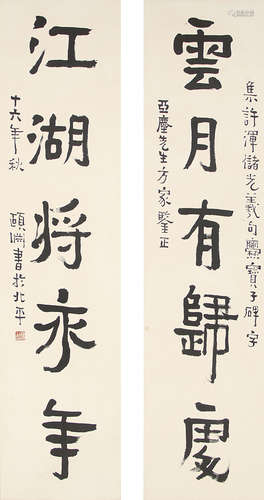 集許渾儲光羲句爨寶子碑字
雲月有歸處
亞塵先生方家鑒正
江湖將永年
十六年秋
頤淵書於北平